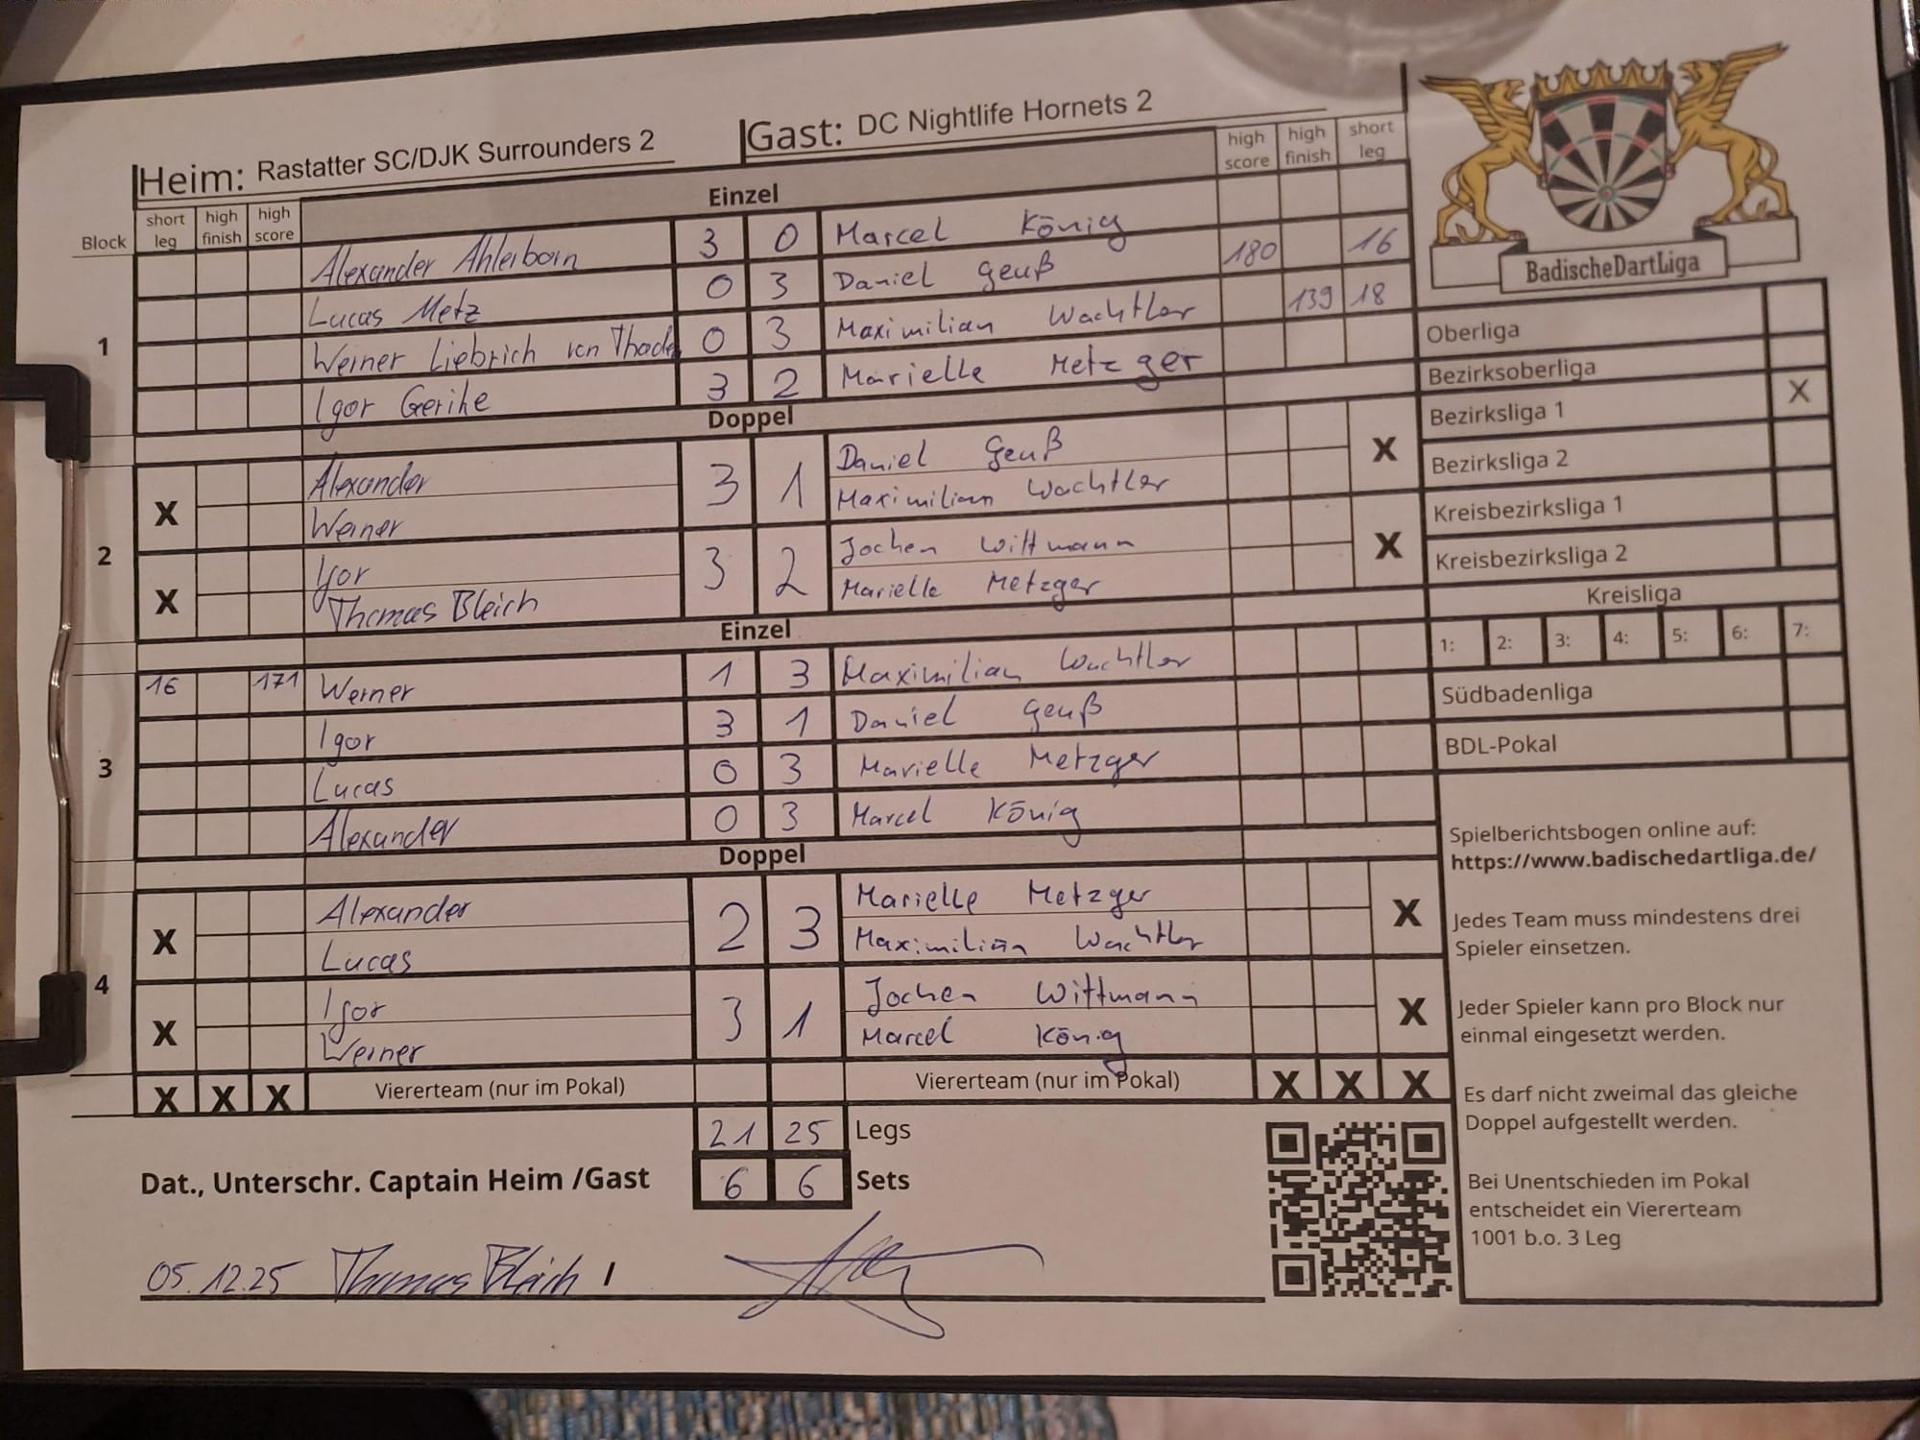 Heim: Rastatter SC/DJK Surrounders 2 Gast: DC Nightlife Hornets 2
Block short leg high finish high score Einzel high score high finish short leg
Alexander Ahleiborn 3 0 Marcel König
Lucas Metz 0 3 Daniel Geuß 180 16
1 Werner Liebrich von Thade 0 3 Maximilian Wachtler 139 18
Igor Gerihe 3 2 Marielle Metzger
Doppel
X Alexander 3 1 Daniel Geuß X
Werner Maximilian Wachtler
2
X Igor 3 2 Jochen Wittmann X
Thomas Bleich Marielle Metzger
Einzel
16 171 Werner 1 3 Maximilian Wachtler
Igor 3 1 Daniel Geuß
3 Lucas 0 3 Marielle Metzger
Alexander 0 3 Marcel König
Doppel
X Alexander 2 3 Marielle Metzger X
Lucas Maximilian Wachtler
4
X Igor 3 1 Jochen Wittmann X
Werner Marcel König
X X X Viererteam (nur im Pokal) Viererteam (nur im Pokal) X X X
21 25 Legs
Dat., Unterschr. Captain Heim /Gast 6 6 Sets
05.12.25 Thomas Bleich /
BadischeDartLiga
Oberliga
Bezirksoberliga
Bezirksliga 1 X
Bezirksliga 2
Kreisbezirksliga 1
Kreisbezirksliga 2
Kreisliga
1: 2: 3: 4: 5: 6: 7:
Südbadenliga
BDL-Pokal
Spielberichtsbogen online auf:
https://www.badischedartliga.de/
Jedes Team muss mindestens drei
Spieler einsetzen.
Jeder Spieler kann pro Block nur
einmal eingesetzt werden.
Es darf nicht zweimal das gleiche
Doppel aufgestellt werden.
Bei Unentschieden im Pokal
entscheidet ein Viererteam
1001 b.o. 3 Leg